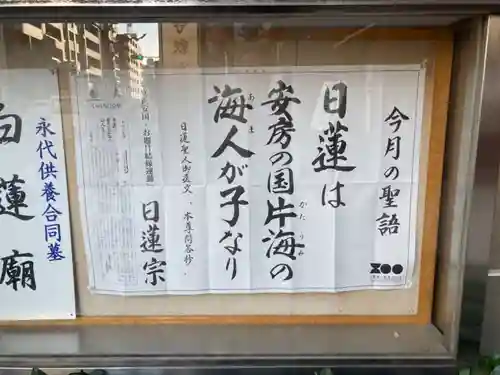 今月の聖語
日蓮は
安房の国片海の
かたうみ
海人が子なり
あま
日蓮聖人御遺文・本尊問答抄・
日蓮宗
永代供養合同墓
白蓮廟